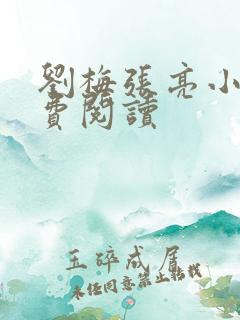 劉梅張亮小
費閱讀
玉碎成居
未经同意禁止转载